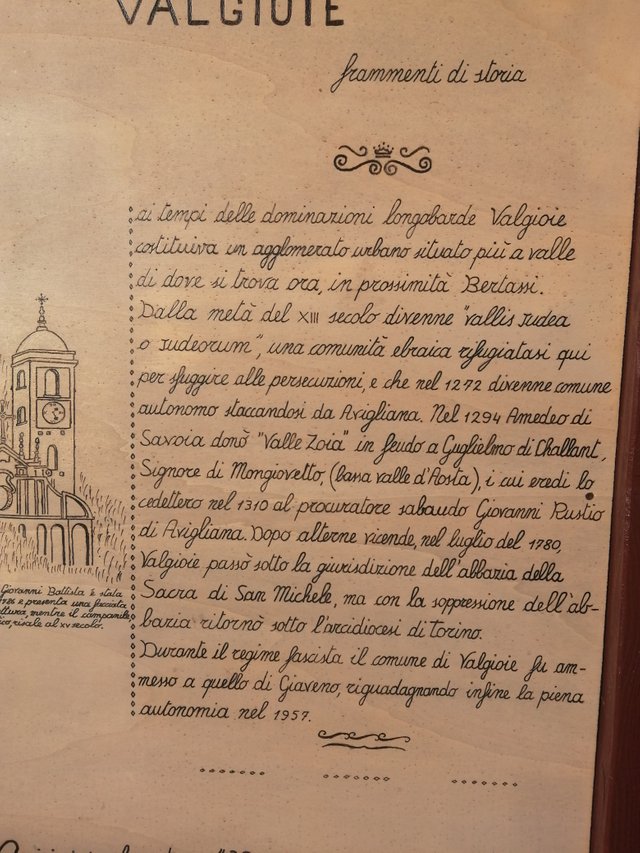 VALGIOIE
frammenti di storia
ai tempi delle dominazioni longobarde Valgioie
costituiva un agglomerato urbano situato più a valle
di dove si trova ora, in prossimità Bertassi.
Dalla metà del XIII secolo divenne "vallis Judea
o Judeorum", una comunità ebraica rifugiatasi qui
per sfuggire alle persecuzioni, e che nel 1272 divenne comune
autonomo staccandosi da Avigliana. Nel 1294 Amedeo di
Savoia donò "Valle Zoia" in feudo a Guglielmo di Challant,
Signore di Mongiovetto (bassa valle d'Aosta), i cui eredi lo
cedettero nel 1310 al procuratore sabaudo Giovanni Rustio
di Avigliana. Dopo alterne vicende, nel luglio del 1780,
Valgioie passò sotto la giurisdizione dell'abbazia della
Sacra di San Michele, ma con la soppressione dell'ab-
bazia ritornò sotto l'arcidiocesi di Torino.
Durante il regime fascista il comune di Valgioie fu am-
messo a quello di Giaveno, riguadagnando infine la piena
autonomia nel 1957.
Giovanni Battista è stata
e presenta una facciata
mentre il campanile
risale al XV secolo.